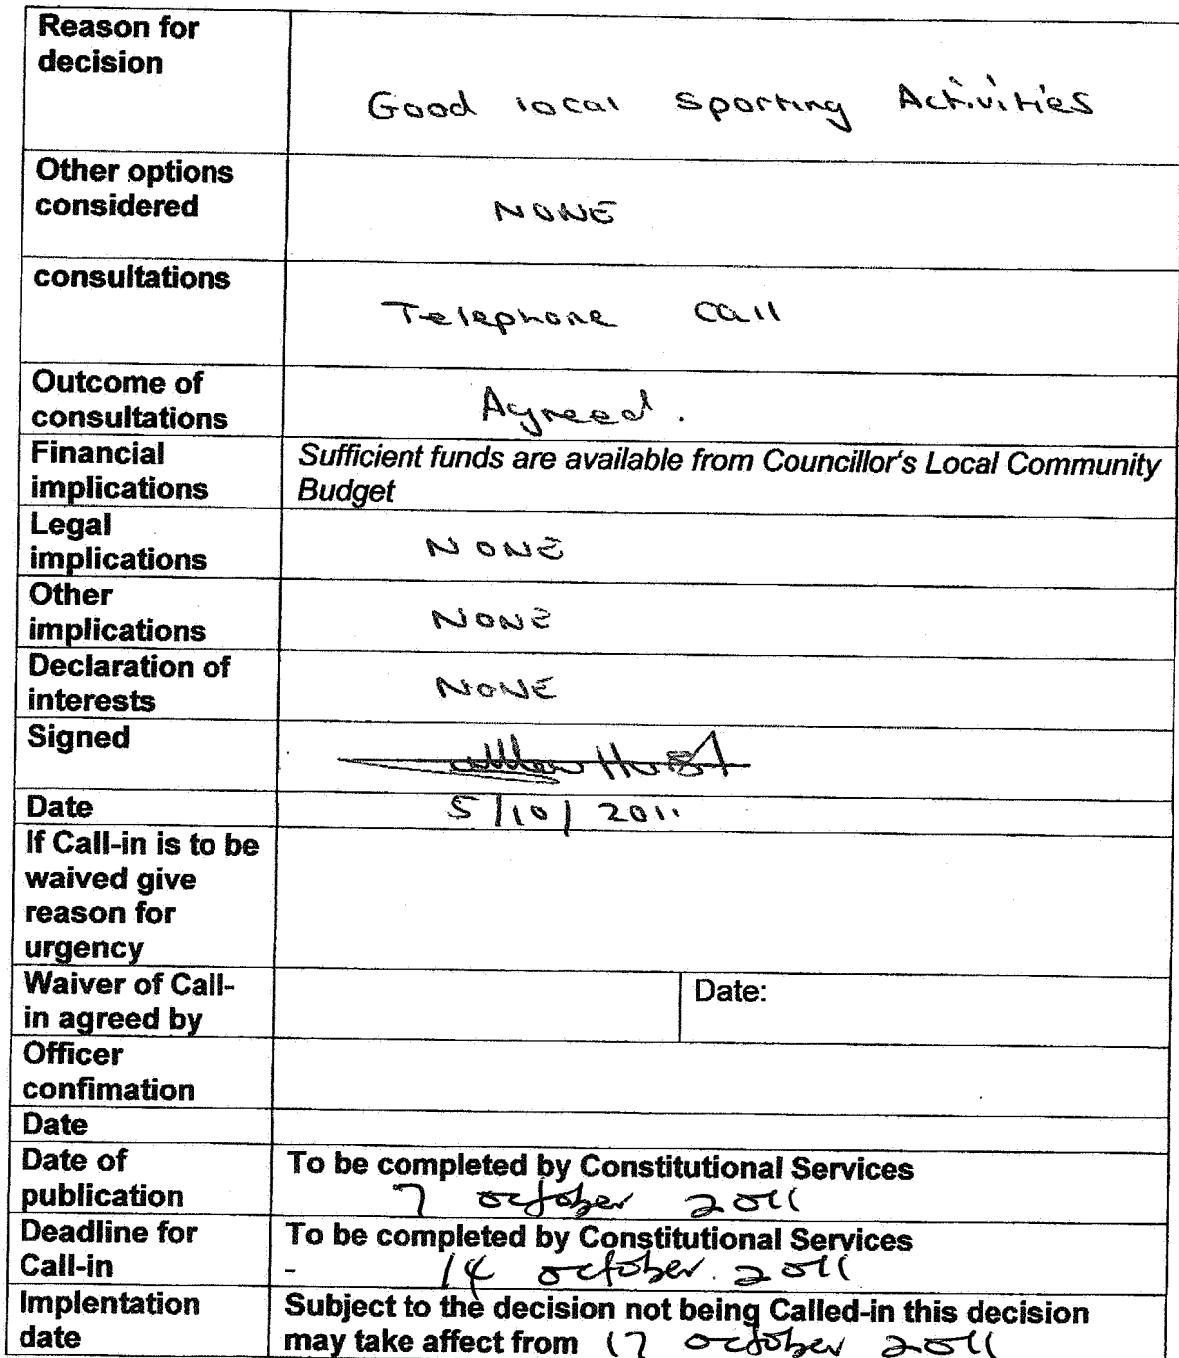 Reason for
decision
Good local Sporting Activities
Other options
considered
NONE
consultations
Telephone call
Outcome of
consultations
Agreed.
Financial
implications
Sufficient funds are available from Councillor's Local Community
Budget
Legal
implications
NONE
Other
implications
NONE
Declaration of
interests
NONE
Signed
Date
5/10/2011
If Call-in is to be
waived give
reason for
urgency
Waiver of Call-
in agreed by
Date:
Officer
confimation
Date
Date of
publication
To be completed by Constitutional Services
7 october 2011
Deadline for
Call-in
To be completed by Constitutional Services
- 14 october. 2011
Implentation
date
Subject to the decision not being Called-in this decision
may take affect from 17 october 2011